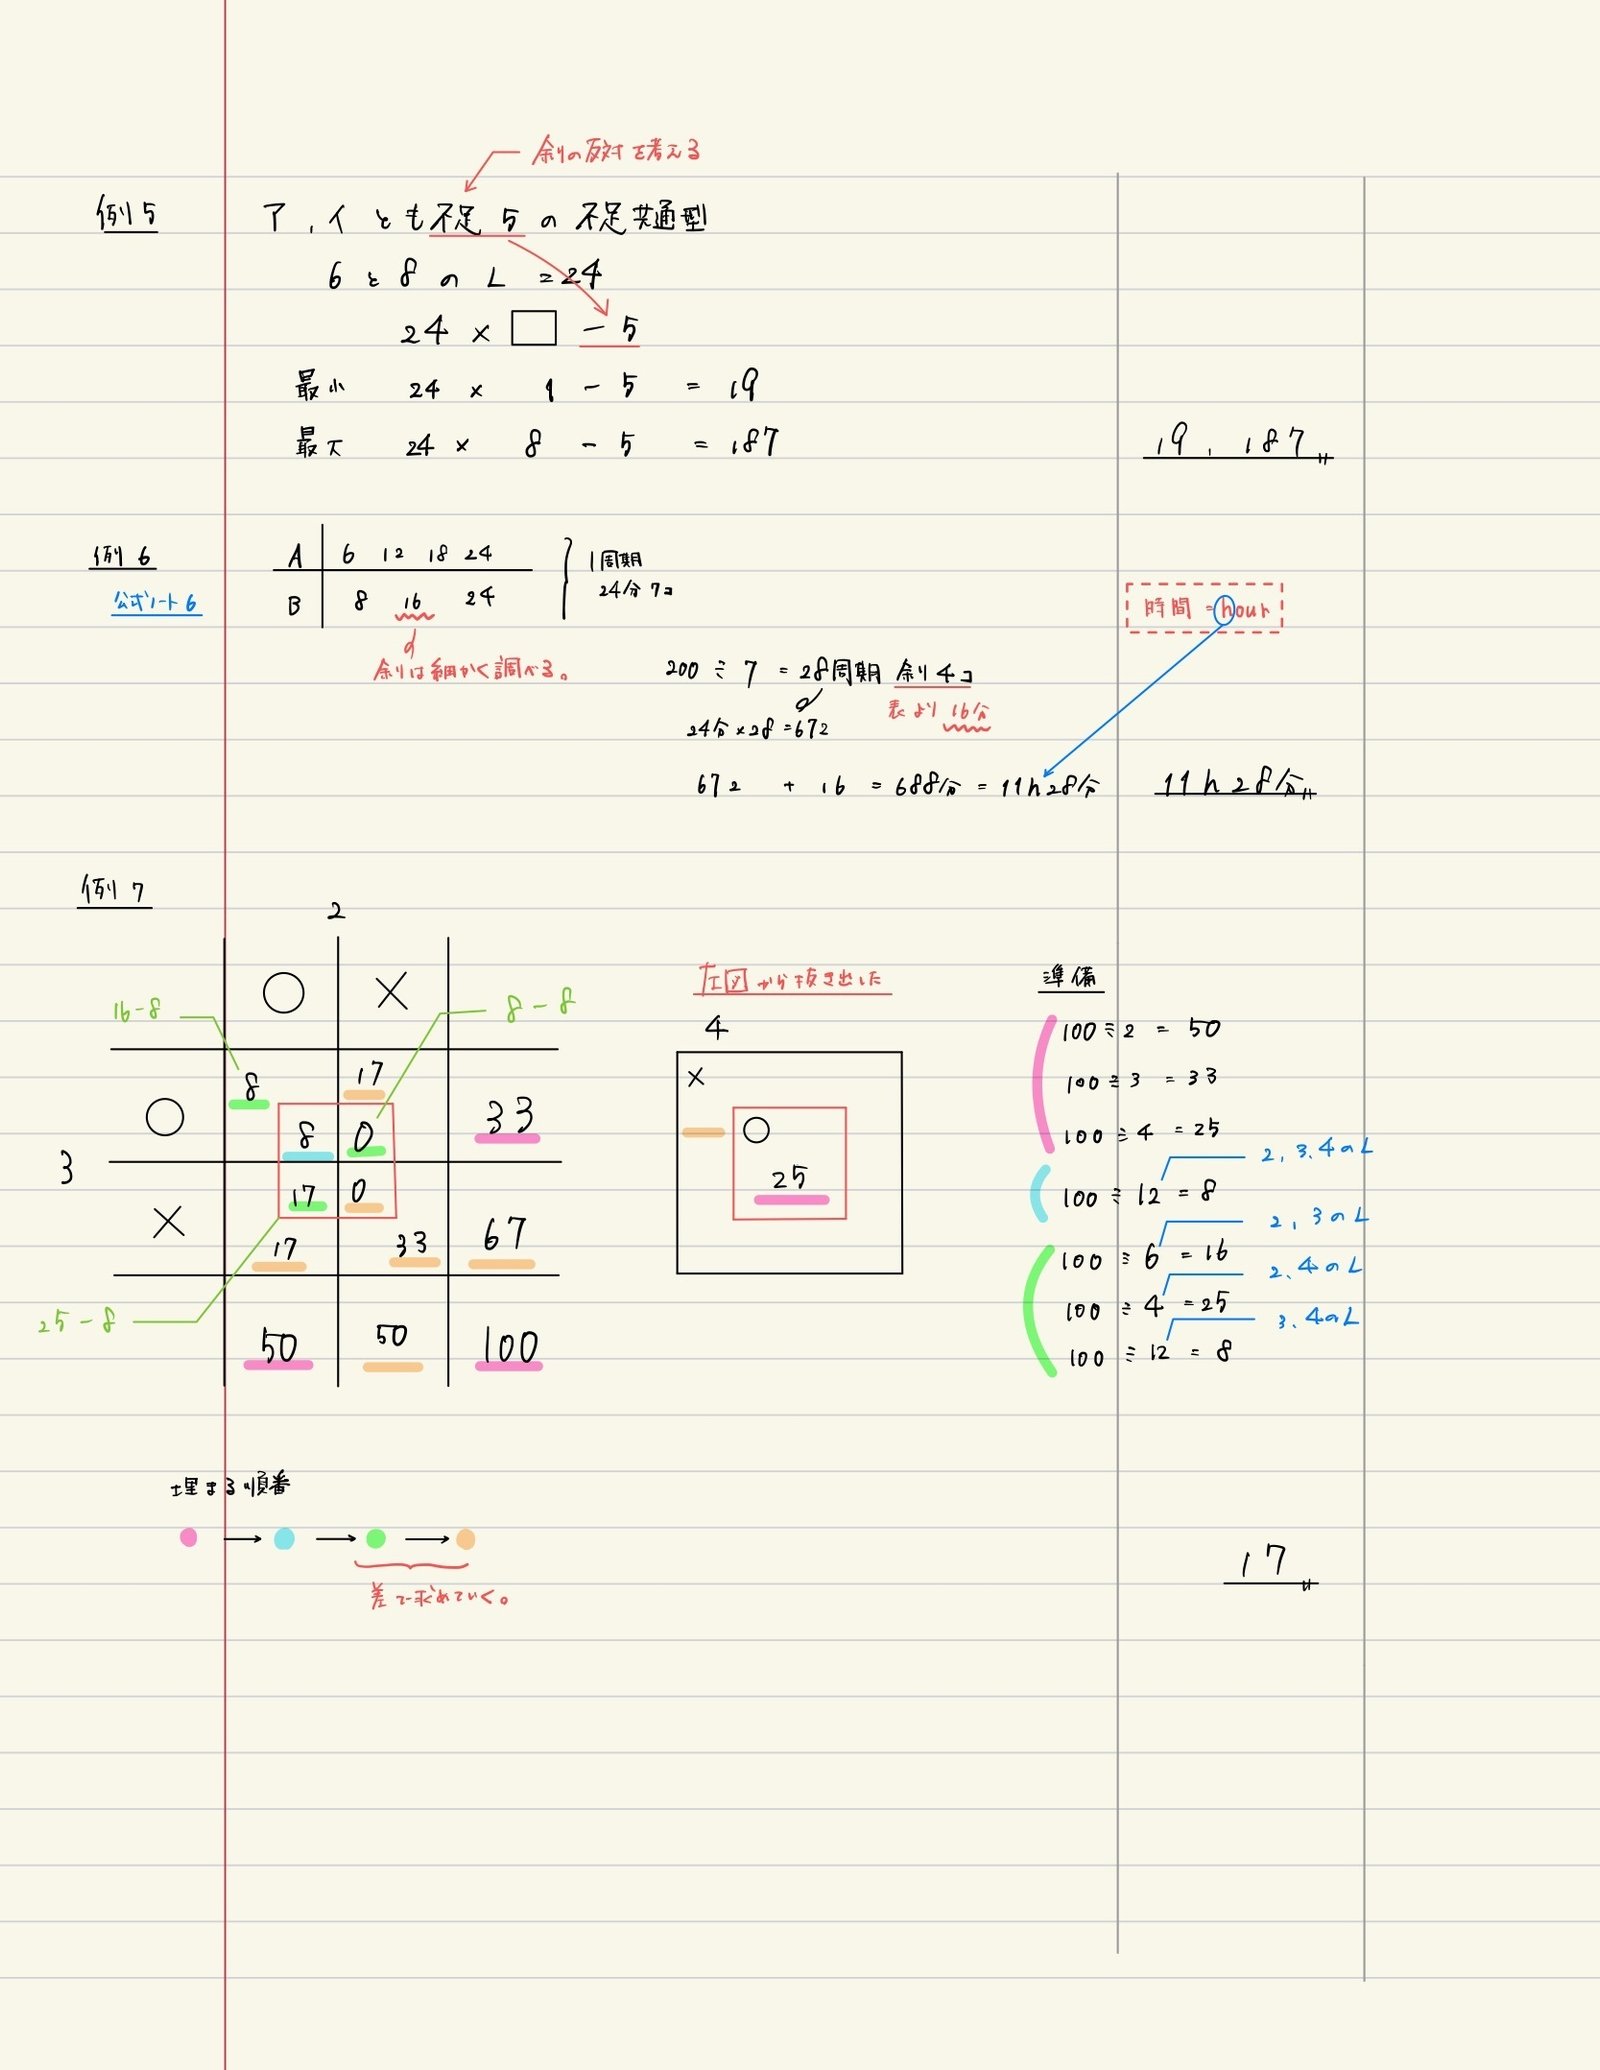 余りの反対を考える
例5 ア,イとも不足5の不足共通型
6と8のL =24
24 × □ - 5
最小 24 × 1 - 5 = 19
最大 24 × 8 - 5 = 187
19, 187
例6
公式ノート6
A 6 12 18 24
B 8 16 24
1周期
24分 7コ
時間 = hour
余りは細かく調べる。
200 ÷ 7 = 28周期 余り4コ
表より 16分
24分×28=672
672 + 16 = 688分 = 11h28分
11h28分
例7
2
○ ×
16-8
8-8
3
○ 8 17 33
8 0
17 0
× 17 33 67
50 50 100
25-8
左図から抜き出した
4
×
○
25
準備
100÷2 = 50
100÷3 = 33
100÷4 = 25
2,3,4のL
100÷12 = 8
2,3のL
100÷6 = 16
2,4のL
100÷4 = 25
3,4のL
100÷12 = 8
埋まる順番
→ → →
差で求めていく。
17